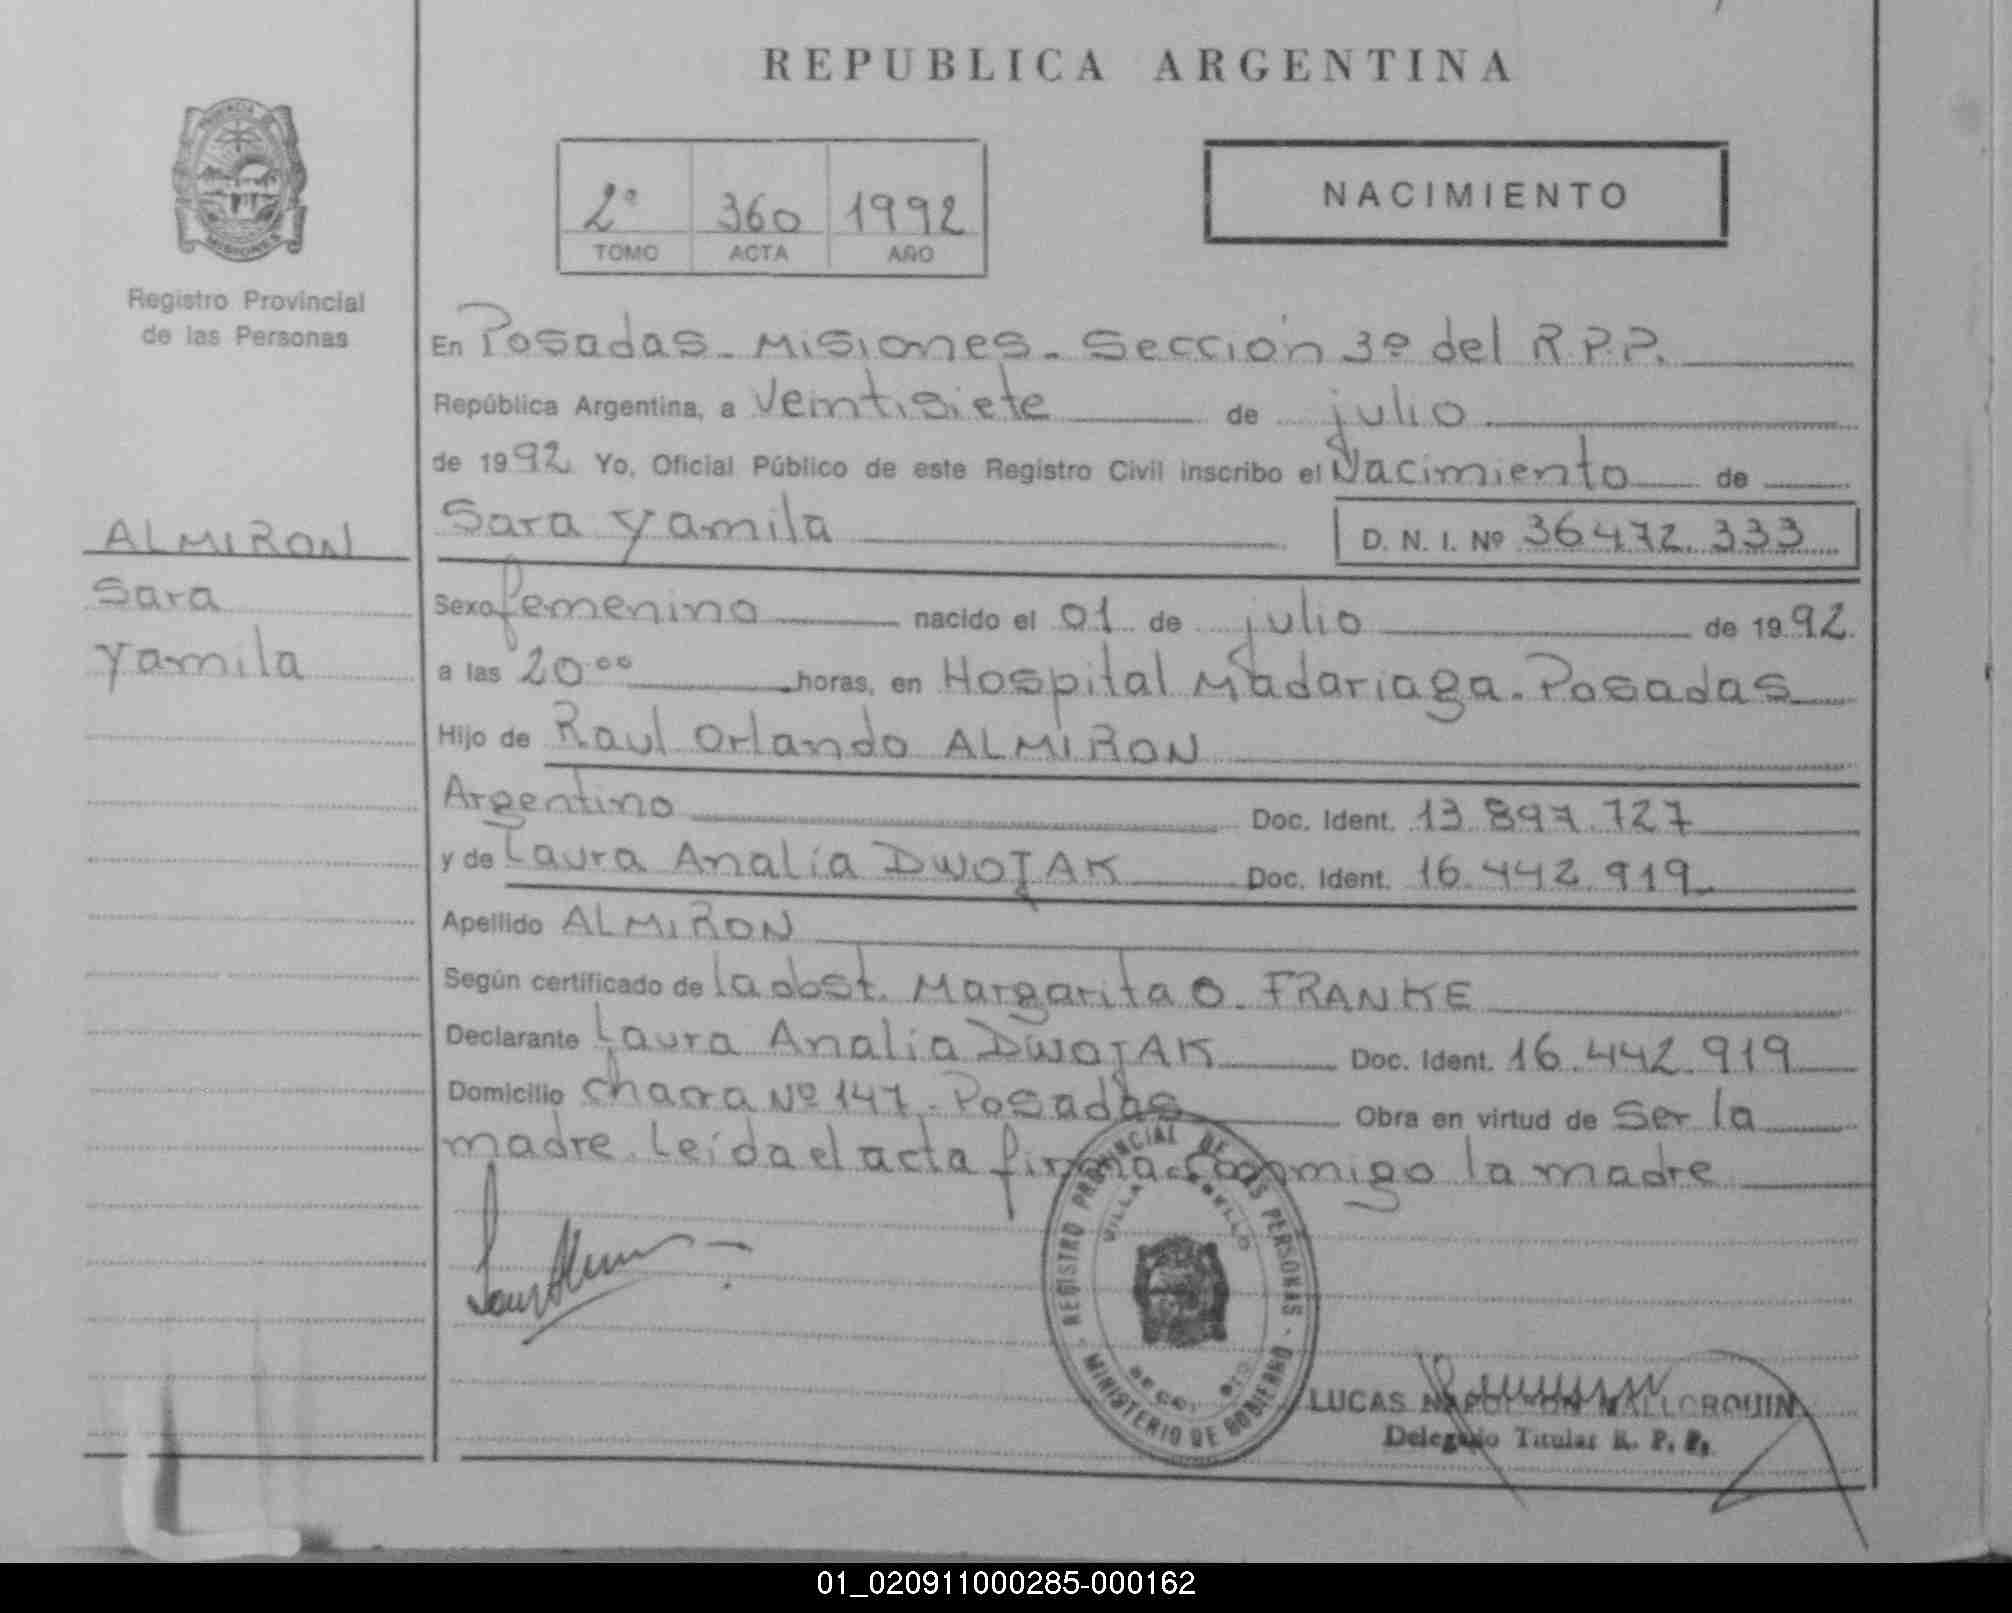 REPUBLICA ARGENTINA
PROVINCIA DE
MISIONES
Registro Provincial
de las Personas
2º 360 1992
TOMO ACTA AÑO
NACIMIENTO
En Posadas - Misiones - Sección 3º del R.P.P.
República Argentina, a Veintisiete de julio
de 1992 Yo, Oficial Público de este Registro Civil inscribo el Nacimiento de
Sara Yamila D. N. I. Nº 36.472.333
ALMIRON
Sara
Yamila
Sexo femenino nacido el 01 de julio de 1992
a las 20.00 horas, en Hospital Madariaga - Posadas
Hijo de Raul Orlando ALMIRON
Argentino Doc. Ident. 13.897.727
y de Laura Analía DWOJAK Doc. Ident. 16.442.919
Apellido ALMIRON
Según certificado de la obst. Margarita O. FRANKE
Declarante Laura Analia DWOJAK Doc. Ident. 16.442.919
Domicilio Chacra Nº 147 - Posadas Obra en virtud de Ser la
madre. Leída el acta firma conmigo la madre
REGISTRO PROVINCIAL DE LAS PERSONAS - MINISTERIO DE GOBIERNO -
VILLA
LUCAS NAPOLEON MALLORQUIN
Delegado Titular R. P. P.
01_020911000285-000162